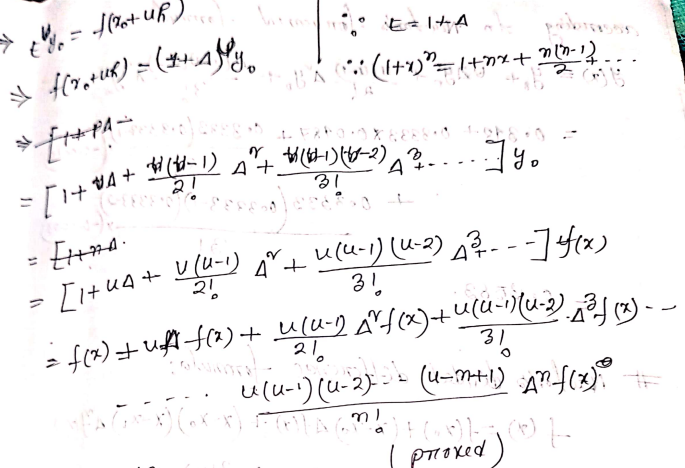 ⇒ E^u y₀ = f(x₀+uh)
∵ E = 1+Δ
⇒ f(x₀+uh) = (1+Δ)^u y₀
∵ (1+x)^n = 1+nx+ n(n-1)/2 + ...
⇒ [1+PΔ-
= [1+uΔ+ u(u-1)/2! Δ² + u(u-1)(u-2)/3! Δ³+.....] y₀
= [1+nΔ.
= [1+uΔ+ u(u-1)/2! Δ² + u(u-1)(u-2)/3! Δ³+---] f(x)
= f(x)+uΔf(x)+ u(u-1)/2! Δ²f(x)+ u(u-1)(u-2)/3! Δ³f(x)--
-..... u(u-1)(u-2)--- (u-n+1)/n! Δⁿf(x)
(proved)